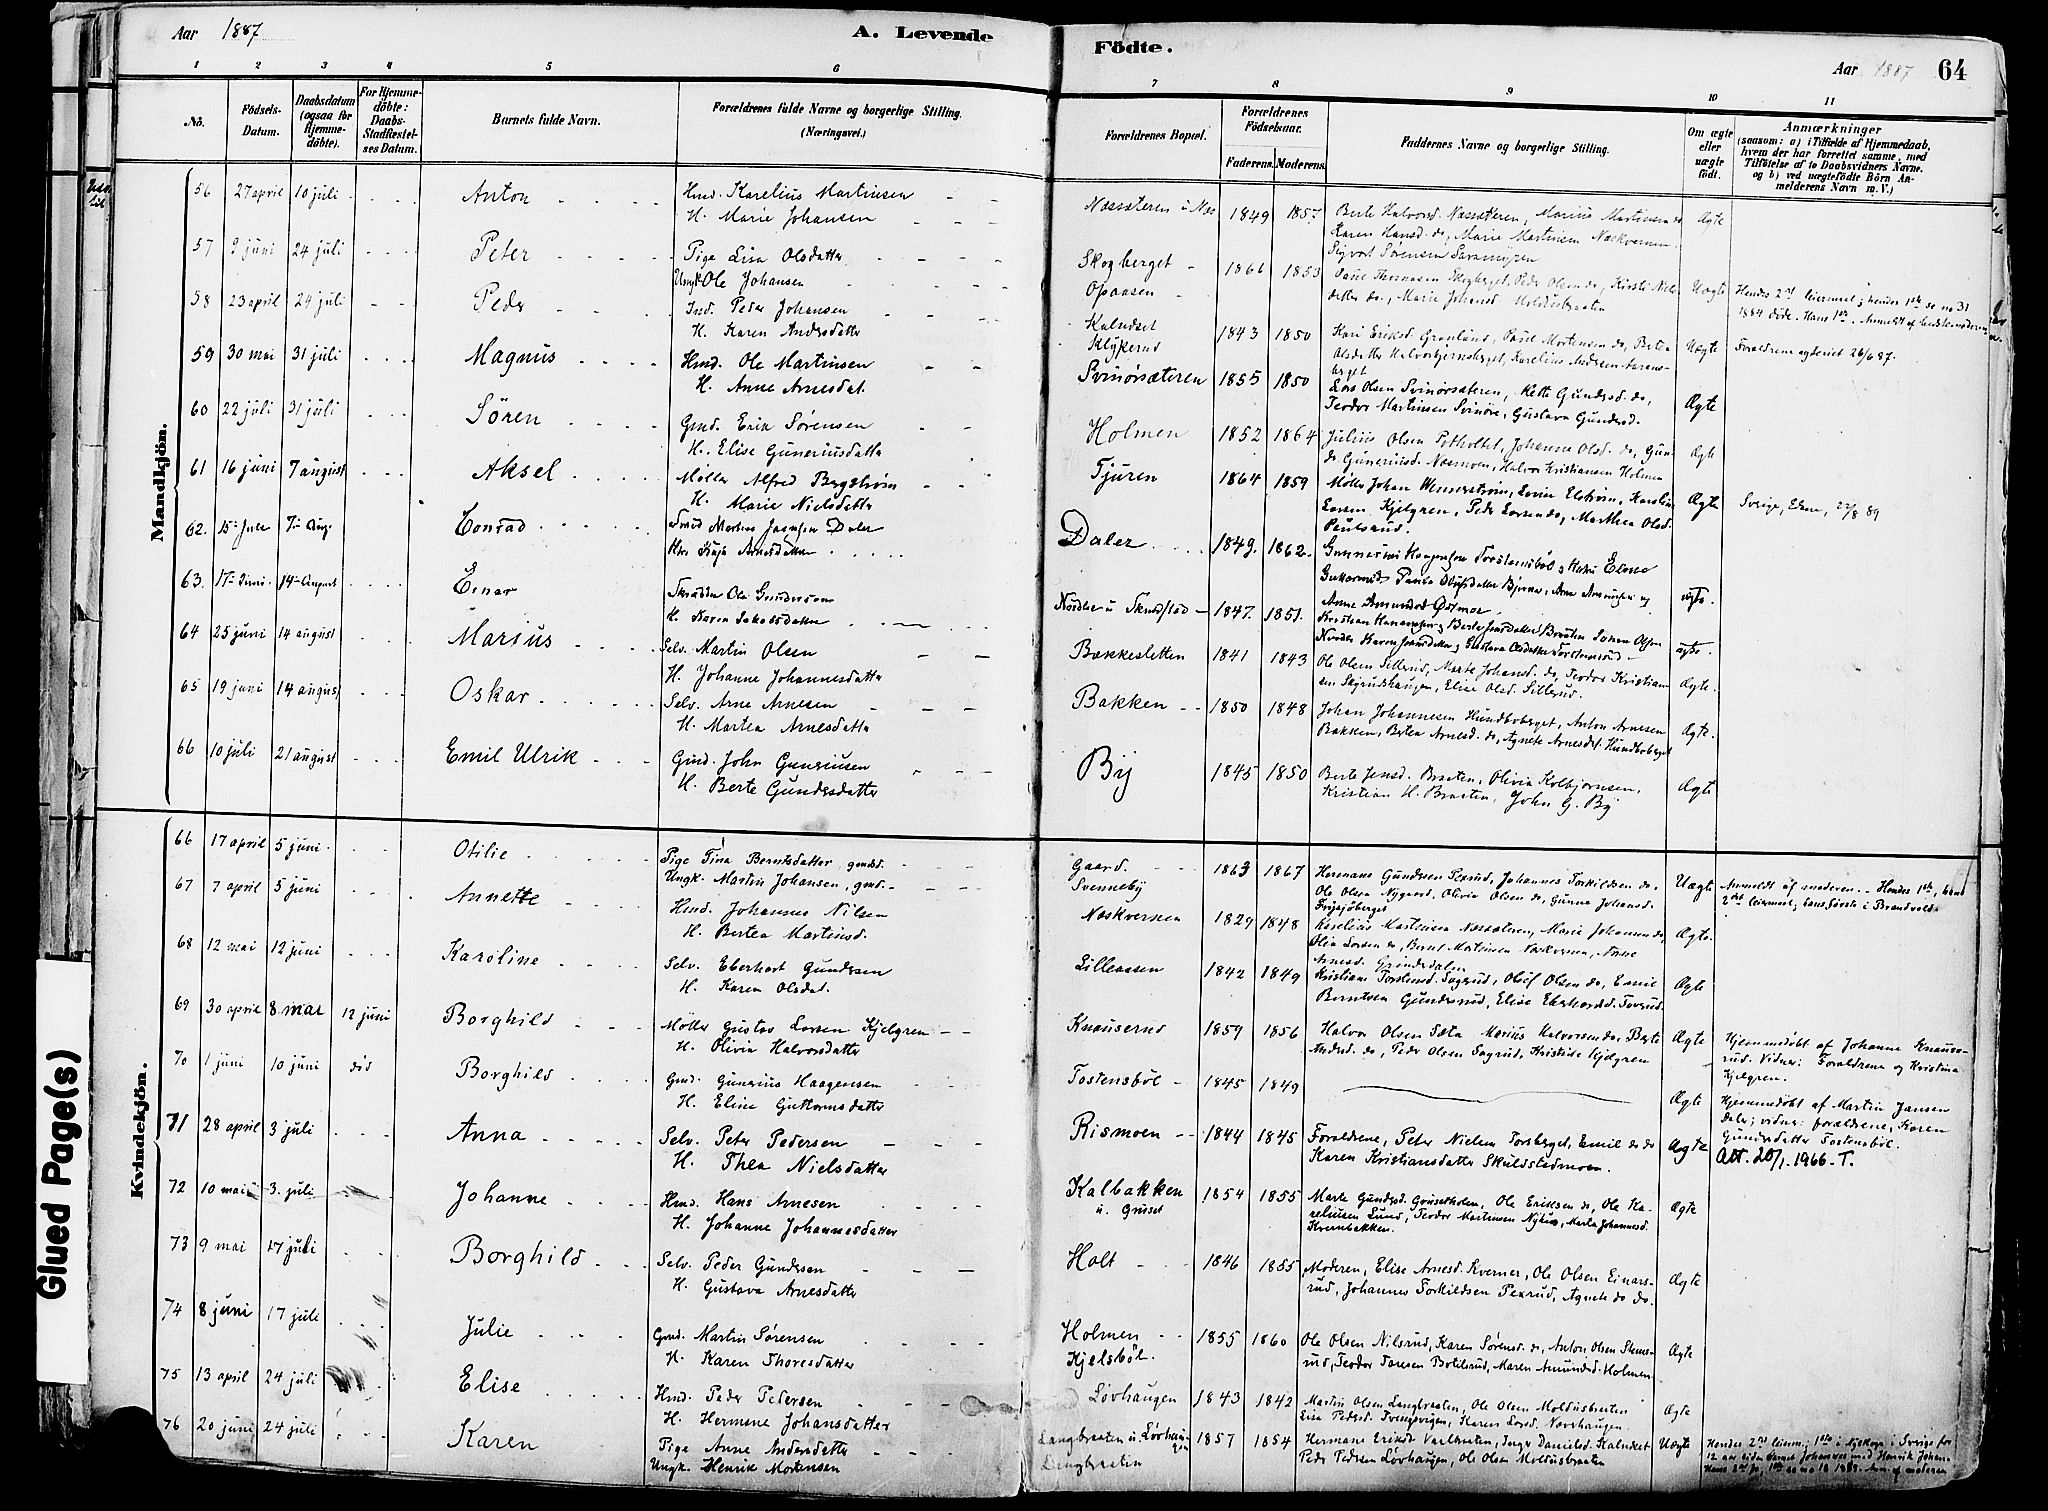 Aar 1887
A. Levende
Födte.
Aar 1887 64
1 2 3 4 5 6 7 8 9 10 11
No.
Födsels-Datum.
Daabsdatum (ogsaa for Hjemmedöbte).
For Hjemmedöbte: Daabs-Stadfæstelses Datum.
Barnets fulde Navn.
Forældrenes fulde Navne og borgerlige Stilling. (Næringsvei.)
Forældrenes Bopæl.
Forældrenes Födselsaar.
Faderens. Moderens.
Faddernes Navne og borgerlige Stilling.
Om ægte eller uægte födt.
Anmærkninger
(saasom: a) i Tilfælde af Hjemmedaab, hvem der har forrettet samme, med Tilföielse af to Daabsvidners Navne. og b) ved uægtefödte Börn Anmelderens Navn m. V.)
Mandkjön.
56 27 april 10 juli Anton Hmd. Karelius Martinsen
H. Marie Johansen
Næssæteren u Næs 1849 1857 Berte Halvorsd. Næssæteren, Marius Martinsen do
Karen Hansd. do, Marie Martinsen Næskvernen
Sigvart Sørensen
Ægte
57 9 juni 24 juli Peter Pige Lisa Olsdatter
Ungk. Ole Johansen
Skogberget
Opaasen
1861 1853 Paul Thomasen Skogberget, Peder Olsen do, Kirsti Nilsdatter do, Marie Johansd. Moldusbraaten
Uægte Hendes 2det leiermaal; hendes 1ste se no 31
1884 døde. Hans 1ste. Anmeldt af
58 23 april 24 juli Peder Ind. Peder Johansen
H. Karen Andersdatter
Kalneset
Klykerud
1843 1850 Kari Eriksd. Grønlund, Paul Mortensen do, Berte Olsdatter
Uægte Forældrene ægteviet 26/6 87.
59 30 mai 31 juli Magnus Hmd. Ole Martinsen
H. Anne Arnesdat.
Svinørsæteren 1855 1850 Lars Olsen Svinørsæteren, Kette Gundersd. do,
Teodor Martinsen Svinøre, Gustava Gundersd.
Ægte
60 22 juli 31 juli Sören Gmd. Erik Sørensen
H. Elise Guneriusdatter
Holmen 1852 1864 Julius Olsen Potholtet, Johanne Olsd. do, Gunda Guneriusd. Næsmoen, Halvor Kristiansen Holmen
Ægte
61 16 juni 7 august Aksel Møller Alfred Bergstrøm
H. Marie Nielsdatter
Tjuren 1864 1859 Møller Johan Wennerstrøm, Lovise Elstrøm, Karoline
Larsen Kjelgren, Peder Larsen do, Marthea Olsd.
Paulsrud.
Ægte Sverige, 27/8 89
62. 15 Juli 7 Aug. Conrad
H. Kaja Arnesdatter
Daler 1849. 1862. Gunnerius Haagensen Torstensbøl
63. 17 Juni. 14 August Einar Skrædder Ole Gundersen
H. Karen Jakobsdatter
1847. 1851. ægte.
Anne Amundsd Østmoe
64 25 juni 14 august Marius Selv. Martin Olsen
H. Johanne Johannesdatter
Bakkesletten 1841 1843 Ole Olsen Sillerud, Marte Johansd. do, Teodor Kristiansen Skjrudshaugen, Elise Olsd. Sillerud.
Ægte.
65 19 juni 14 august Oskar Selv. Arne Arnesen
H. Martea Arnesdatter
Bakken 1850 1848 Johan Johannesen Hundboberget, Anton Arnesen
Bakken, Bertea Arnesd. do, Agnete Arnesdat. Hundboberget
Ægte.
66 10 juli 21 august Emil Ulrik Gmd. John Gunerusen
H. Berte Gundersdatter
By 1845 1850 Berte Jensd. Braaten, Olivia Kolbjørnsen,
Kristian H. Braaten, John G. By
Ægte
Kvindekjön.
66 17 april 5 juni Otilie Pige Tina Berntsdatter gmdd.
Ungk. Martin Johansen, gmd.
Gaard.
Svenneby
1863 1867 Hermans Gundersen Pexrud, Johannes Torkildsen do.
Ole Olsen Nygaard, Olivia Olsen do, Gunne Johansd.
Uægte Anmeldt af moderen. Hendes 1ste, hans
2det leiermaal; hans første i Brandvold.
67 7 april 5 juni Annette Hmd. Johannes Nilsen
H. Bertea Martinsd.
Næskvernen 1829 1848 Karelius Martinsen Næssæteren, Marie Johansen do,
Olia Larsen do, Bernt Martinsen Næskvernen, Anne
Arnesd. Grindsdalen
Ægte.
68 12 mai 12 juni Karoline Selv. Eberhart Gundersen
H. Karen Olsdat.
Lilleaasen 1842 1849 Kristian Torslund Sagrud, Oluf Olsen do, Emil
Berntsen Gundersrud, Elise Eberhardsd. Torsrud.
Ægte
69 30 april 8 mai 12 juni Borghild Møller Gustav Larsen Kjelgren
H. Olivia Halvorsdatter
Knauserud 1859 1856 Halvor Olsen Sæta Marius Halvorsen do, Berte
Andersd. do, Peder Olsen Sagrud, Kristine Kjelgren
Ægte Hjemmedøbt af Johanne Knauserud. Vidner: Forældrene og Kristina
Kjelgren.
70 1 juni 10 juni død Borghild Gmd. Gunerius Haagensen
H. Elina Guttormsdatter
Tostensbøl 1845 1849
Ægte Hjemmedøbt af Martin Jansen
Daler; vidner: forældrene, Karen
Gundersdatter Tostensbøl.
71 28 april 3 juli Anna Selv. Peter Pedersen
H. Thea Nielsdatter
Rismoen 1844 1845 Forældrene, Peter Nielsen Torsberget, Emil do do
Karen Kristiansdatter Skuldstadmoen.
Ægte Att. 20/1. 1966. T.
72 10 mai 3. juli Johanne Hmd. Hans Arnesen
H. Johanne Johannesdatter
Kalbakken
u. Grøset
1854 1855 Marte Gundersd. Grøsetholen, Ole Eriksen do, Ole Karelusen Lund, Teodor Martinsen Nyhus, Marta Johannesd.
Kvernbakken.
Ægte
73 9 mai 17 juli Borghild Selv. Peder Gundersen
H. Gustava Arnesdatter
Holt 1846 1855 Moderen, Elise Arnesd. Kverner, Ole Olsen Einarsrud, Johannes Torkildsen Pexrud, Agnete do do.
Ægte
74 8 juni 17 juli Julie Gmd. Martin Sørensen
H. Karen Thoresdatter
Holmen
Kjelsbøl.
1855 1860 Ole Olsen Nilsrud, Karen Sørensd. do, Anton Olsen Stensrud, Teodor Tansen Bottilsrud, Maren Amundsd. Holmen
Ægte
75 13 april 24 juli Elise Hmd. Peder Pedersen
H. Hermene Johansdatter
Løvhaugen 1843 1842 Martin Olsen Langbraaten, Ole Olsen Moldusbraaten
Lisa Pedersd. Tvengsvigen, Karen Larsd. Løvhaugen
Ægte
76 20 juni 24 juli Karen Pige Anne Andersdatter
Ungk. Henrik Mortensen
Langbraaten u. Løvhaugen
Langbraaten
1857 1854 Hermane Eriksd. Varlbraaten, Inger Danielsd. Kalneset
Peder Pedersen Løvhaugen, Ole Olsen Moldusbraaten
Uægte Hendes 2det leierm.; 1ste i Nyskoga i Sverige for
12 aar siden barnet Johannes med Henrik Johansen
Glued Page(s)